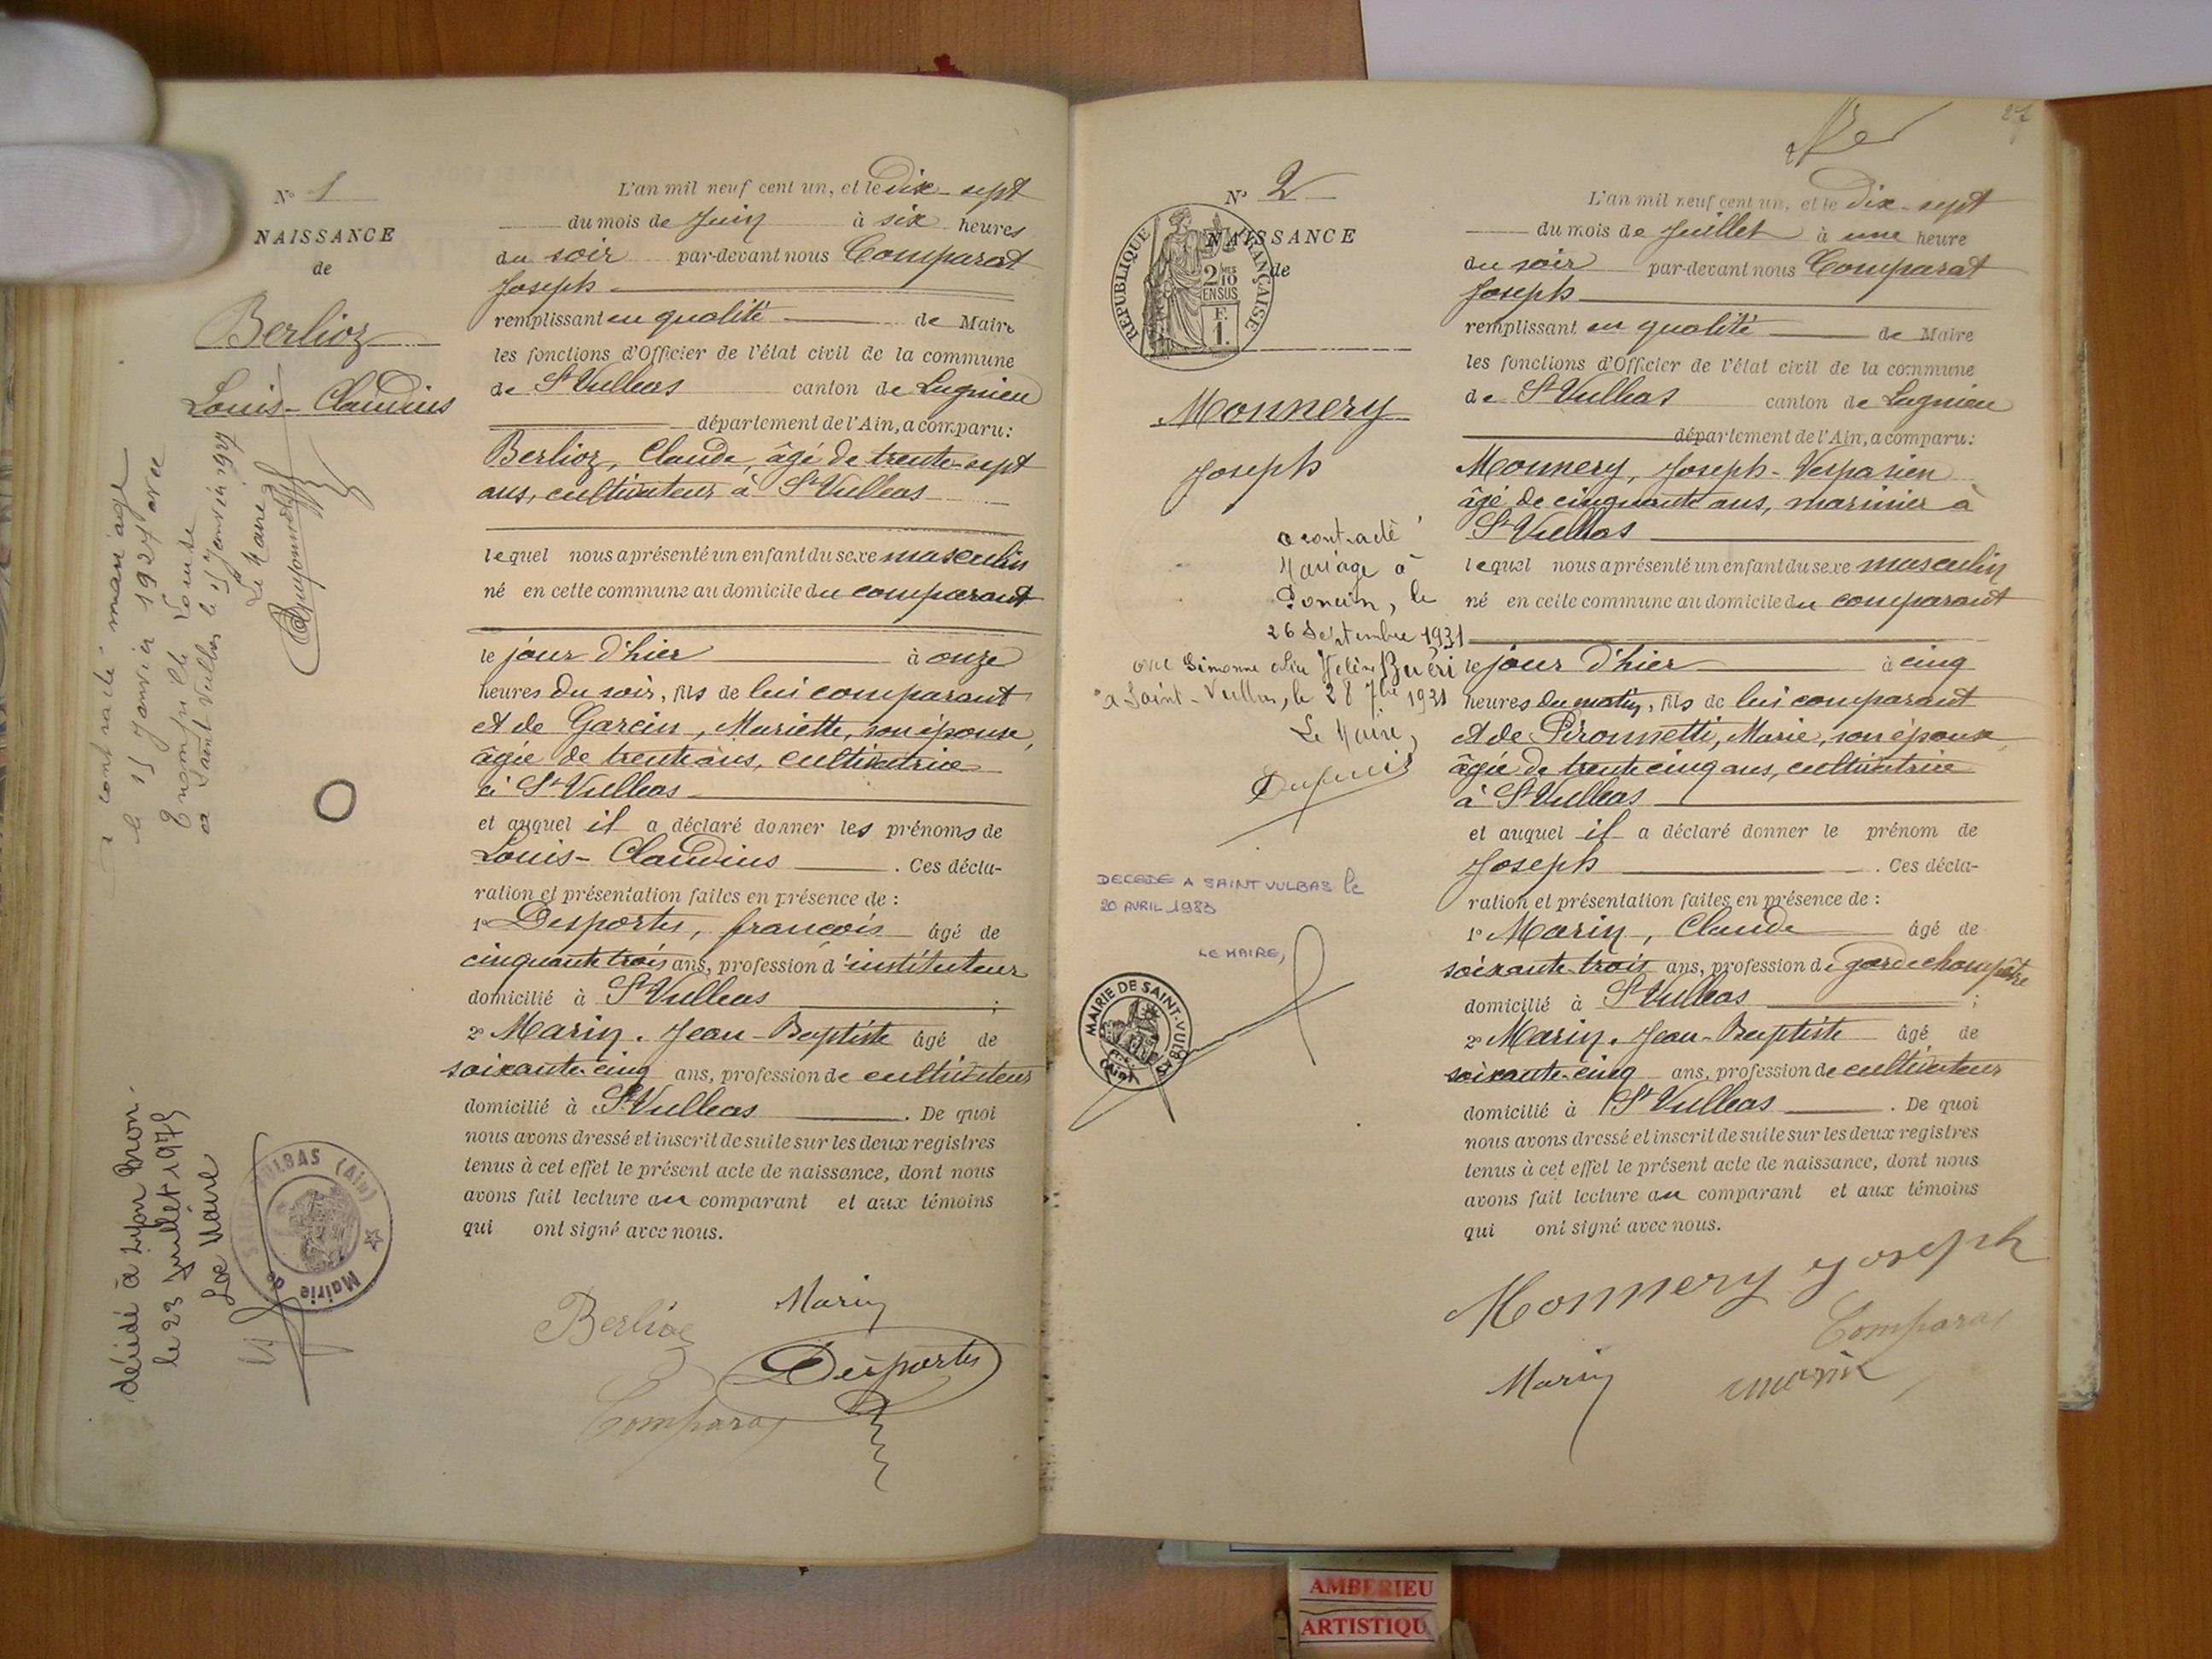 N° 1
NAISSANCE
de
Berlioz
Louis-Claudius
a contracté mariage
le 15 Janvier 1927 avec
Louise
à Saint Vulbas le 15 Janvier 1927
Le Maire
décédé à Lyon Bron
le 23 Juillet 1975
Le Maire
Mairie de SAINT-VULBAS (Ain)
L'an mil neuf cent un, et le dix-sept
du mois de Juin à six heures
du soir par-devant nous Comparat
Joseph
remplissant en qualité de Maire
les fonctions d'Officier de l'état civil de la commune
de St Vulbas canton de Lagnieu
département de l'Ain, a comparu:
Berlioz, Claude, âgé de trente-sept
ans, cultivateur à St Vulbas
lequel nous a présenté un enfant du sexe masculin
né en cette commune au domicile du comparant
le jour d'hier à onze
heures du soir, fils de lui comparant
et de Garcin, Mariette, son épouse,
âgée de trente ans, cultivatrice
à St Vulbas
et auquel il a déclaré donner les prénoms de
Louis-Claudius. Ces décla-
ration et présentation faites en présence de :
1° Desportes, françois âgé de
cinquante trois ans, profession d'instituteur
domicilié à St Vulbas ;
2° Marin, Jean-Baptiste âgé de
soixante-cinq ans, profession de cultivateur
domicilié à St Vulbas. De quoi
nous avons dressé et inscrit de suite sur les deux registres
tenus à cet effet le présent acte de naissance, dont nous
avons fait lecture au comparant et aux témoins
qui ont signé avec nous.
Berlioz Marin
Desportes
Comparat
27
N° 2
NAISSANCE
de
REPUBLIQUE FRANÇAISE
2/10 EN SUS
F. 1.
Monnery
Joseph
a contracté
Mariage à
Poncin, le
26 Septembre 1931
avec Simonne
à Saint-Vulbas, le 28 7bre 1931
Le Maire,
Dupuis
DECEDE A SAINT VULBAS le
20 AVRIL 1983
LE MAIRE,
MAIRIE DE SAINT-VULBAS (Ain)
L'an mil neuf cent un, et le dix-sept
du mois de Juillet à une heure
du soir par-devant nous Comparat
Joseph
remplissant en qualité de Maire
les fonctions d'Officier de l'état civil de la commune
de St Vulbas canton de Lagnieu
département de l'Ain, a comparu:
Monnery, Joseph-Vespasien
âgé de cinquante ans, marinier à
St Vulbas
lequel nous a présenté un enfant du sexe masculin
né en cette commune au domicile du comparant
le jour d'hier à cinq
heures du matin, fils de lui comparant
et de Pironnetti, Marie, son épouse,
âgée de trente cinq ans, cultivatrice
à St Vulbas
et auquel il a déclaré donner le prénom de
Joseph. Ces décla-
ration et présentation faites en présence de :
1° Marin, Claude âgé de
soixante-trois ans, profession de garde champêtre
domicilié à St Vulbas ;
2° Marin, Jean-Baptiste âgé de
soixante-cinq ans, profession de cultivateur
domicilié à St Vulbas. De quoi
nous avons dressé et inscrit de suite sur les deux registres
tenus à cet effet le présent acte de naissance, dont nous
avons fait lecture au comparant et aux témoins
qui ont signé avec nous.
Monnery Joseph
Comparat
Marin marin
AMBERIEU
ARTISTIQU